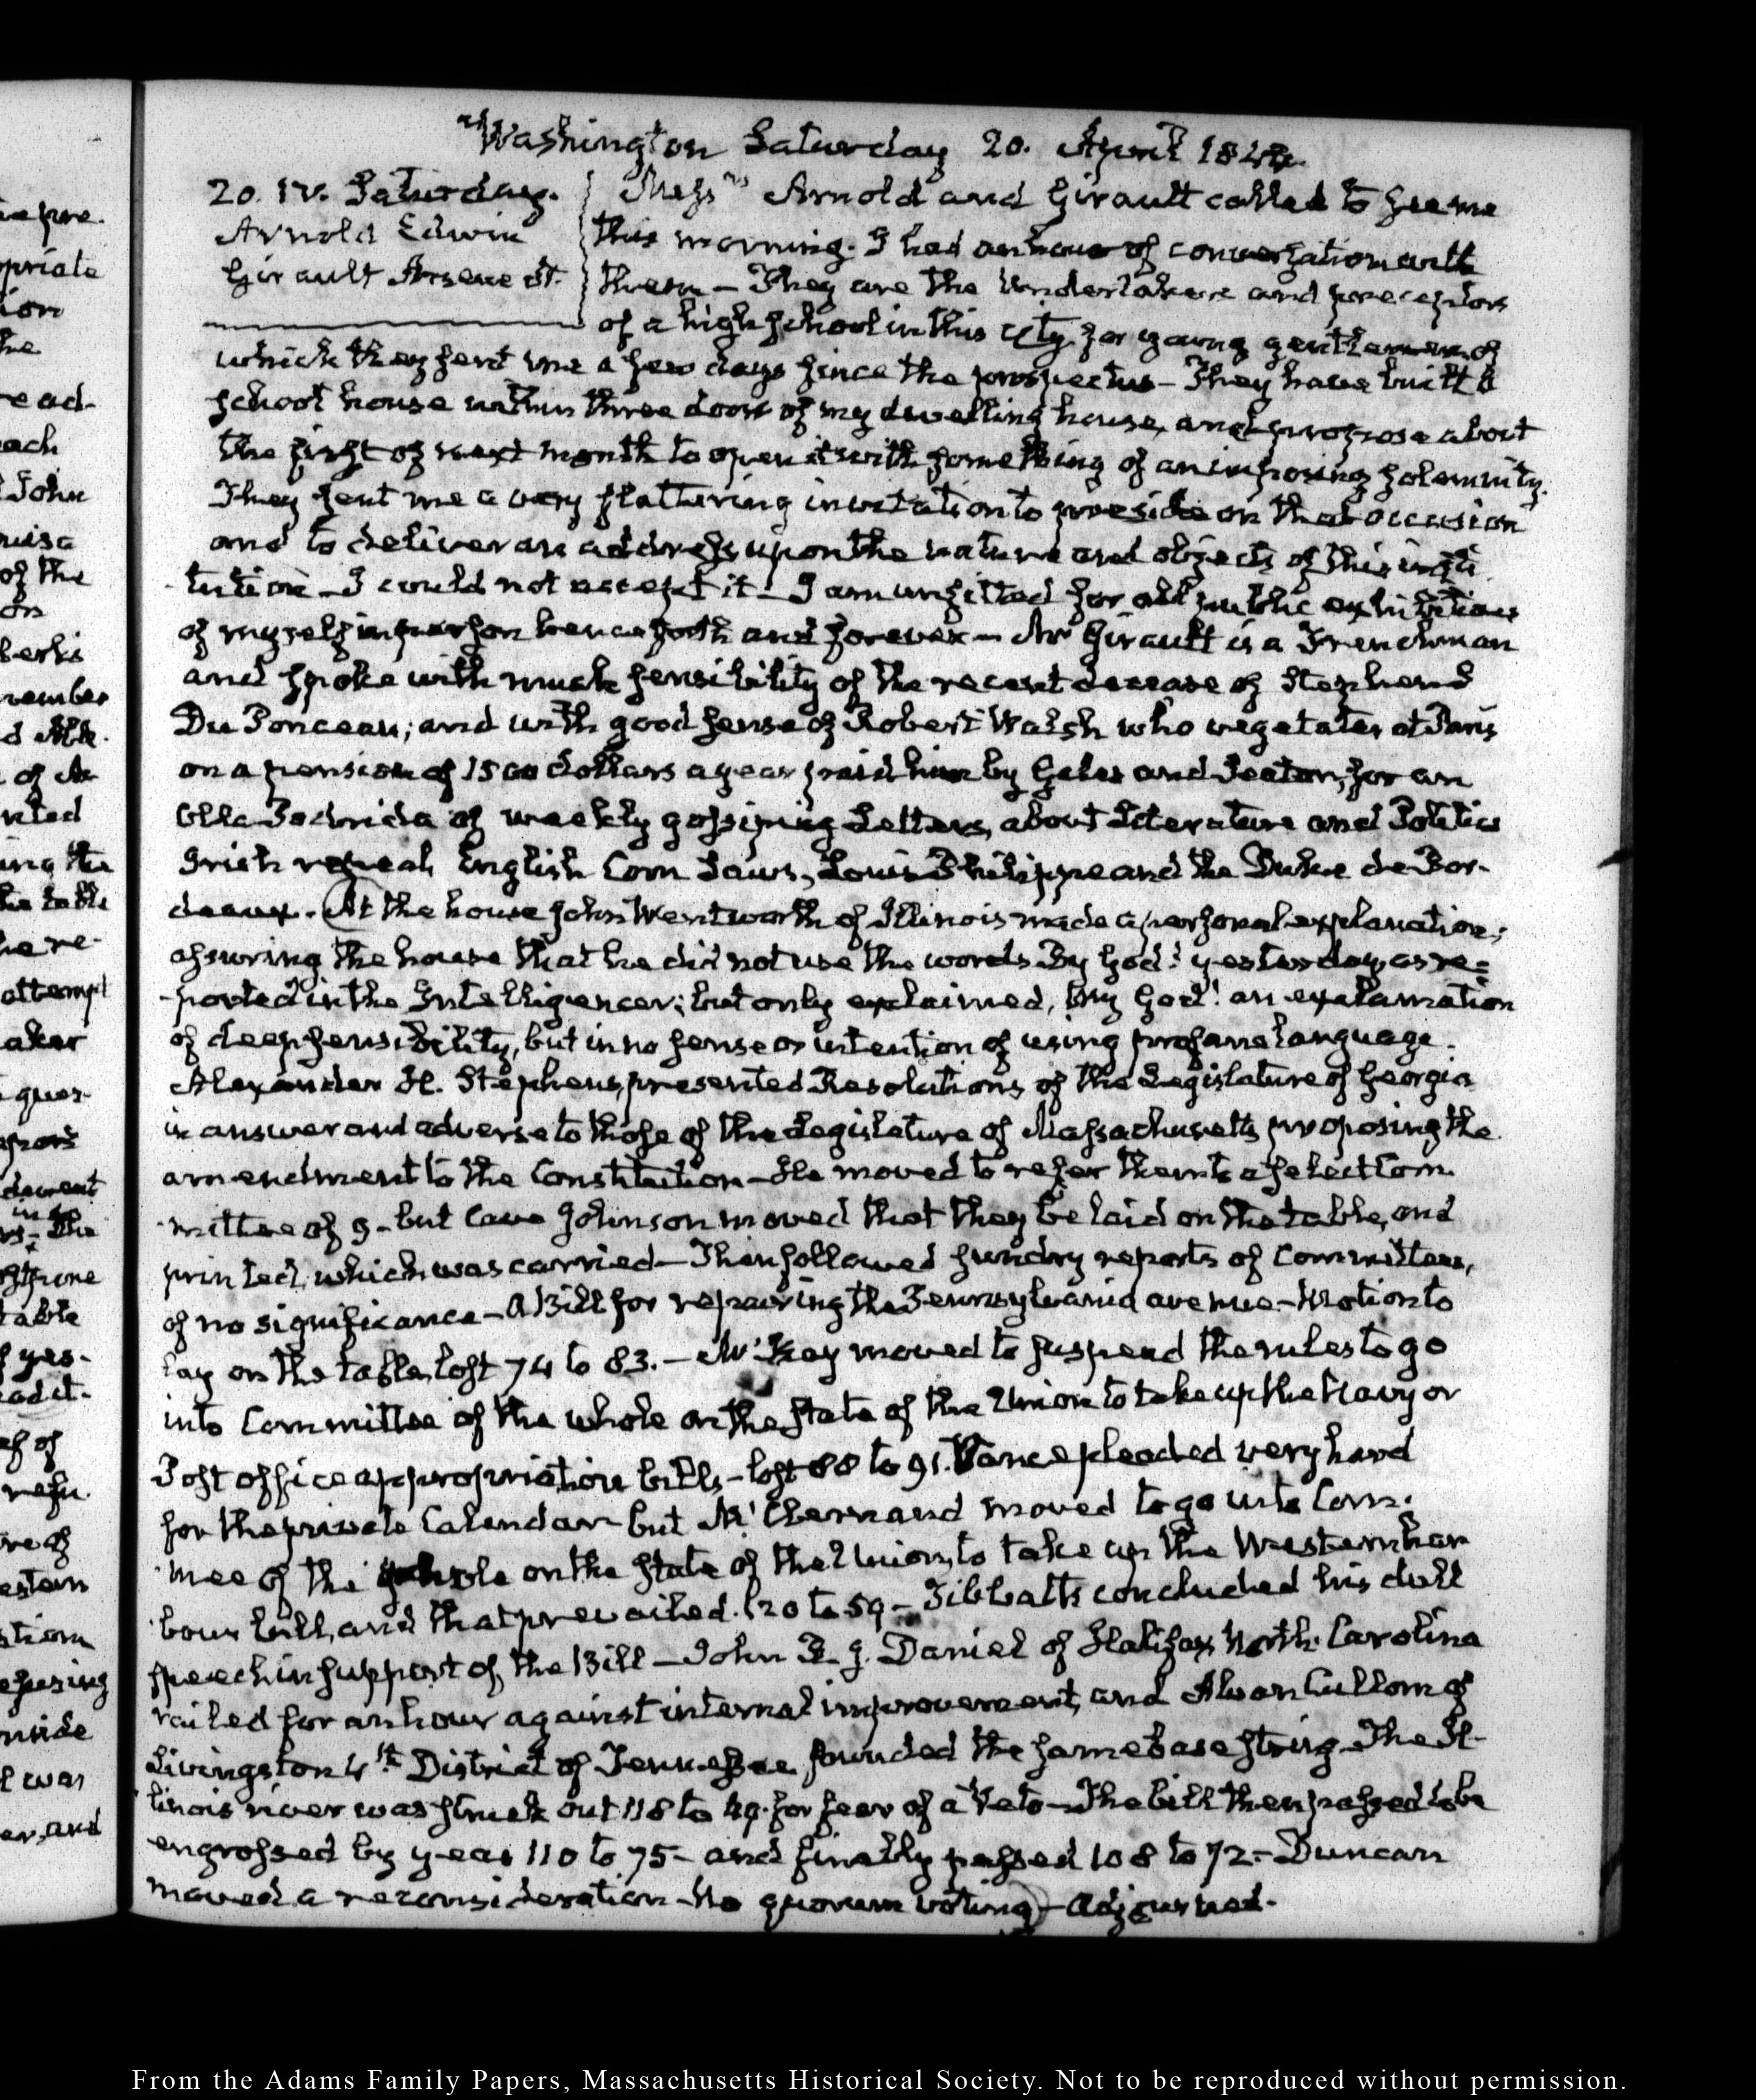 Washington Saturday 20. April 1844.
20. IV. Saturday.
Arnold Edwin
Girault Arsene
Messrs Arnold and Girault called to see me
this morning. I had an hour of conversation with
them — They are the Undertakers and preceptors
of a high school in this City for young gentlemen, of
which they sent me a few days since the prospectus — They have built a
school house within three doors of my dwelling house, and propose about
the first of next month to open it with something of an imposing solemnity.
They sent me a very flattering invitation to preside on that occasion
and to deliver an address upon the nature and objects of this insti
tution — I could not accept it — I am unfitted for all public exhibitions
of myself in person henceforth and forever — Mr Girault is a Frenchman
and spoke with much sensibility of the recent decease of Stephen
Du Ponceau; and with good sense of Robert Walsh who vegetates at Paris
on a pension of 1500 dollars a year paid him by Gales and Seaton, for an
Olla Podrida of weekly gossiping Letters, about Literature and Politics
Irish repeal, English Corn Laws, Louis Philippe and the Duke de Bor-
deaux. At the house John Wentworth of Illinois made a personal explanation;
assuring the house that he did not use the words By God! yesterday, as re=
ported in the Intelligencer; but only exclaimed, My God! an exclamation
of deep sensibility, but in no sense or intention of using profane language.
Alexander H. Stephens, presented Resolutions of the Legislature of Georgia
in answer and adverse to those of the Legislature of Massachusetts proposing the
amendment to the Constitution — He moved to refer them to a select Com
mittee of 9 — but Cave Johnson moved that they be laid on the table, and
printed, which was carried — Then followed sundry reports of Committees,
of no significance — a Bill for repairing the Pennsylvania avenue — Motion to
lay on the table, lost 74 to 83. — McKay moved to suspend the rules to go
into Committee of the whole on the State of the Union to take up the Navy or
Post office appropriation bills, — lost 88 to 91. Vance pleaded very hard
for the private Calendar — but McClernand moved to go into Com.
mee of the whole on the State of the Union, to take up the Western har
bour bill, and that prevailed. 120 to 59 — Tibbatts concluded his dull
speech in support of the Bill — John R. J. Daniel of Halifax, North Carolina
railed for an hour against internal improvement, and Alvan Cullom of
Livingston 4th District of Tennessee sounded the same base string — The Il-
linois river was struck out 118 to 49. for fear of a Veto — The bill then passed to be
engrossed by yeas 110 to 75 — and finally passed 108 to 72 — Duncan
moved a reconsideration — No quorum voting — adjourned.
From the Adams Family Papers, Massachusetts Historical Society. Not to be reproduced without permission.